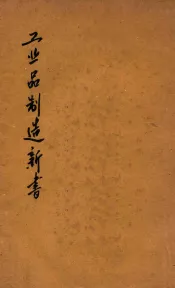 工业品制造新書